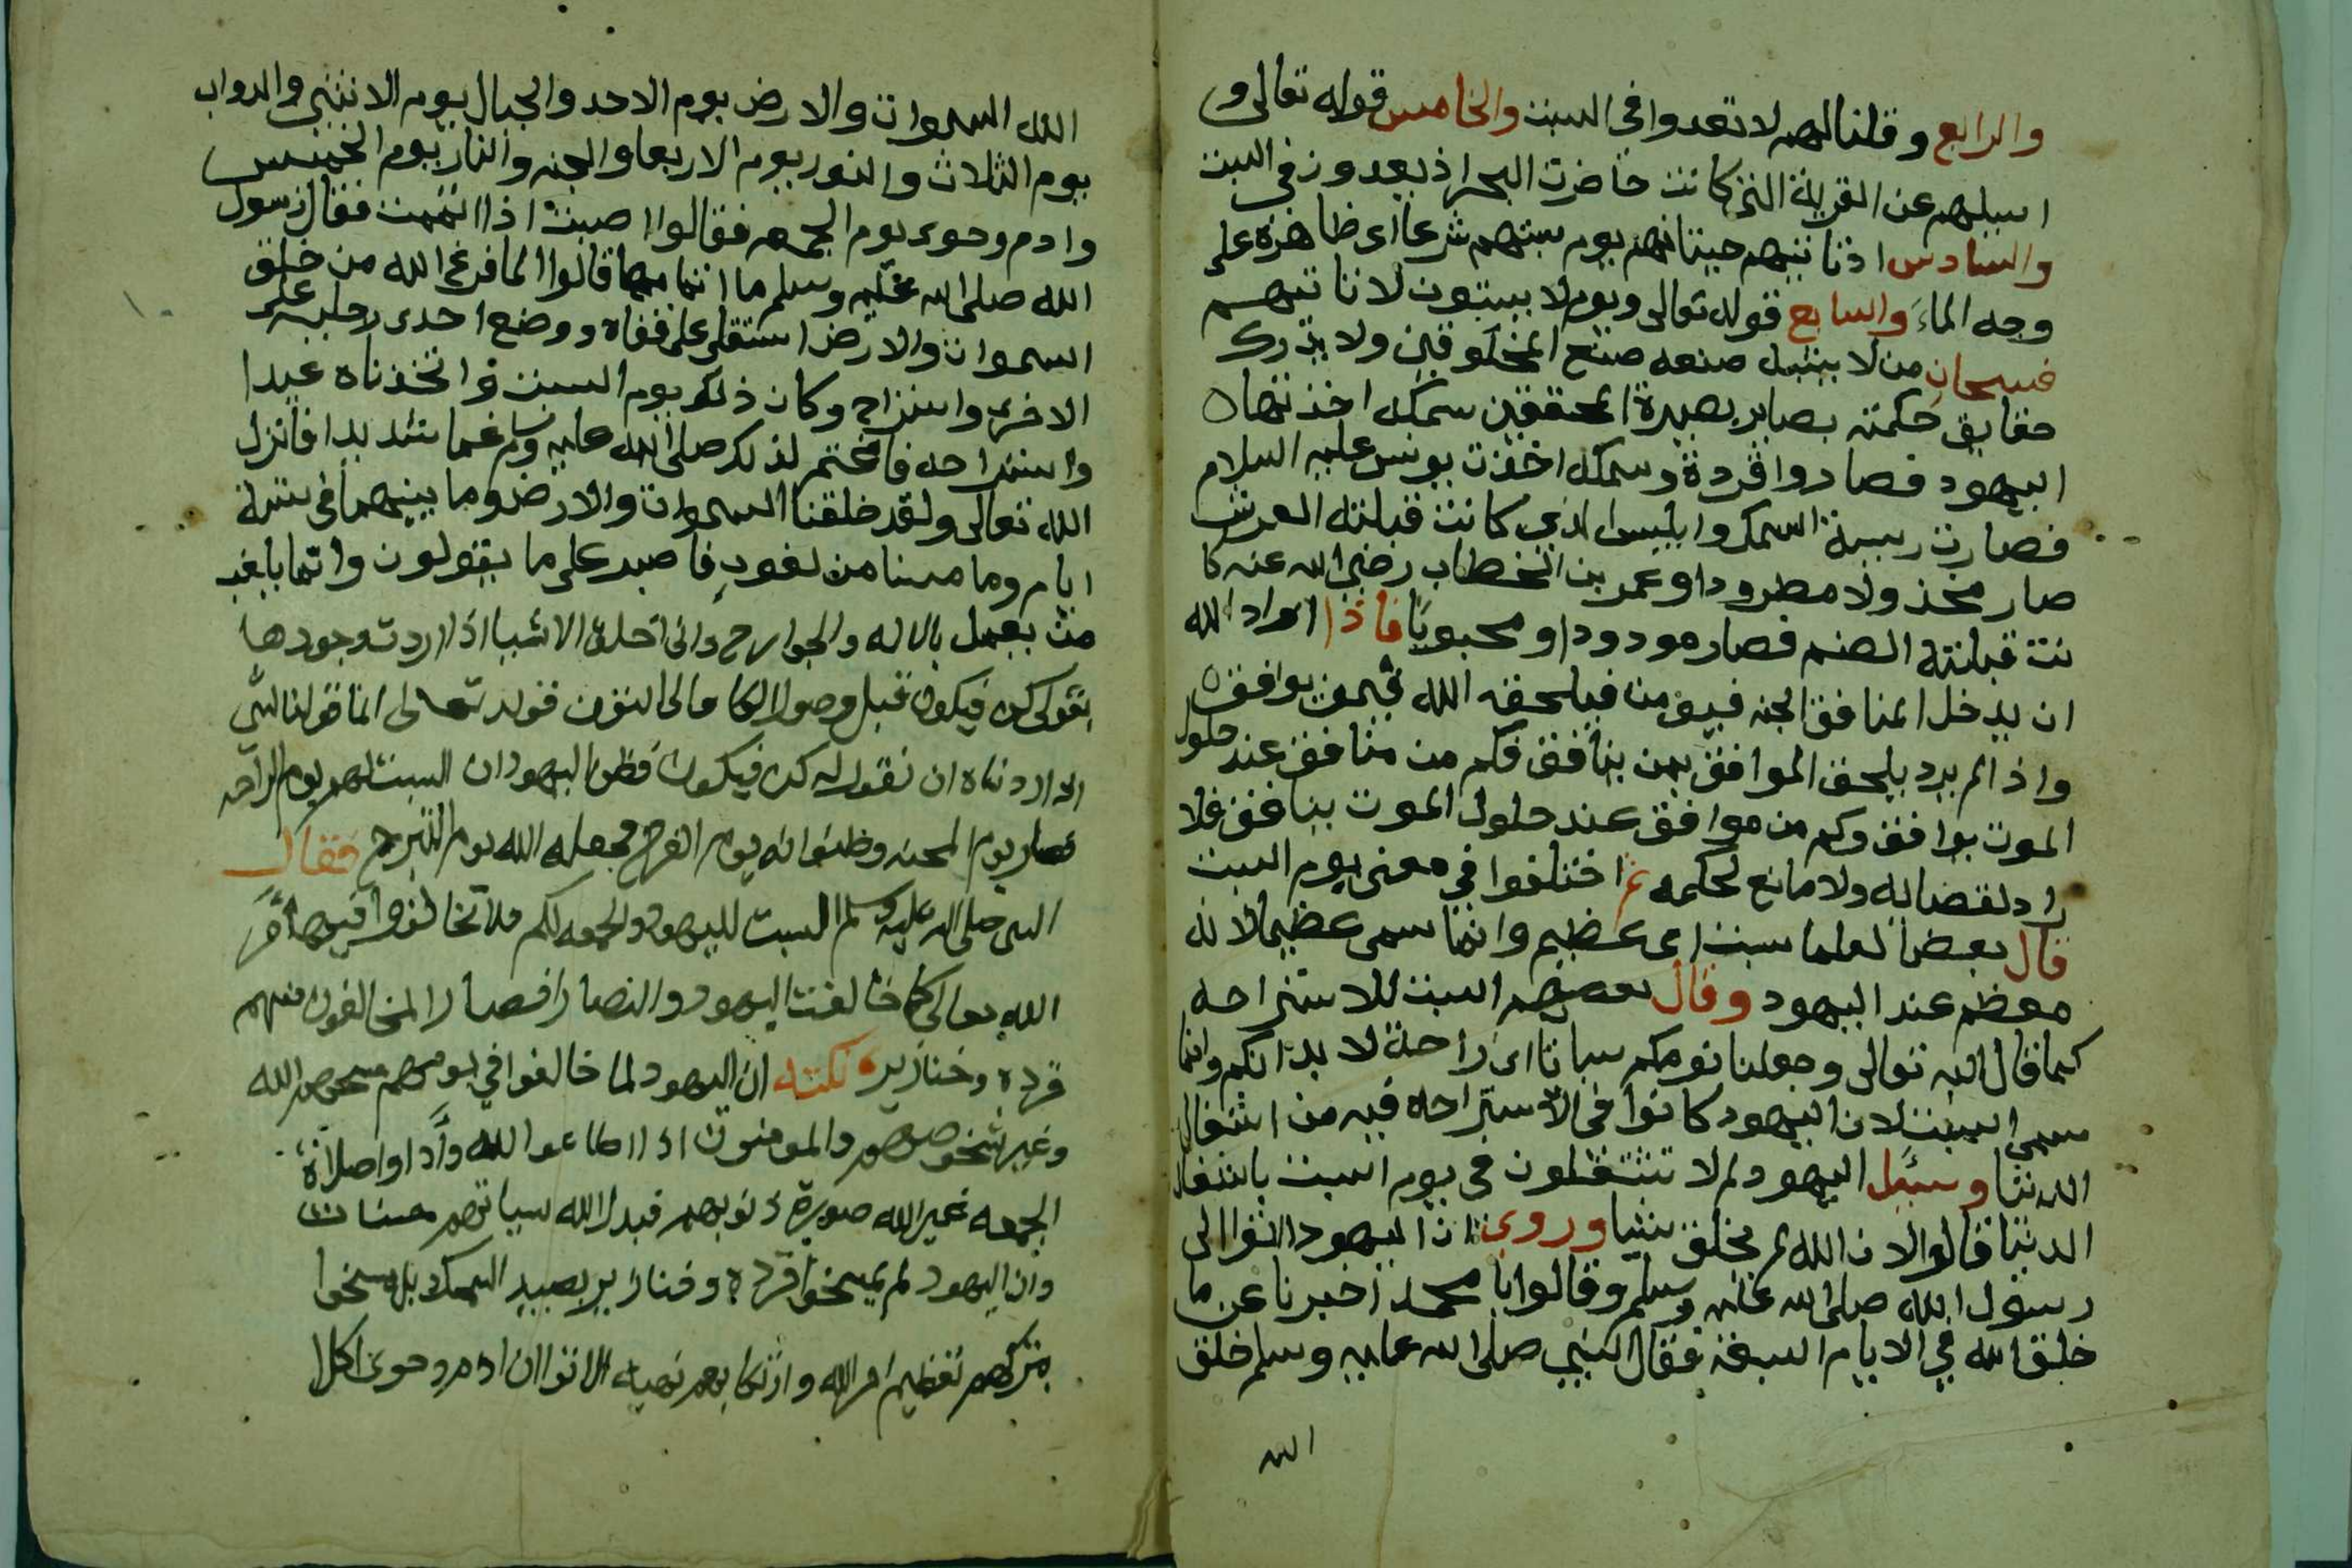 والرابع وقلنا لهم لا تعدوا في السبت والخامس قوله تعالى و
اسيلهم عن القرية التي كانت حاضرت البحر اذ يعدون في السبت
والسادس اذ تاتيهم حيتانهم يوم سبتهم شرعا اى ظاهرة على
وجه الماء والسابع قوله تعالى ويوم لا يسبتون لا تاتيهم
فسبحان من لا يشبه صنعه صنع المخلوقين ولا يدرك
حقايق حكمته بصاير بصيرة المحققين سمكه اخذتها
اليهود فصاروا قردة وسمكه اخذت يونس عليه السلام
فصارت رييسة السمك وابليس الذي كانت قبلته العرش
صار مخذولا مطرودا وعمر بن الخطاب رضي الله عنه كا
نت قبلته الصنم فصار مودودا ومحبوبا فاذا اراد الله
ان يدخل المنافق الجنه فيلحقه الله بمن يوافق
واذا لم يرد يلحق الموافق بمن ينافق فكم من منافق عند حلول
الموت يوافق وكم من موافق عند حلول الموت ينافق فلا
راد لقضايه ولا مانع لحكمه ثم اختلفوا في معنى يوم السبت
قال بعض العلما سبت اى عظيم وانما سمى عظيما لانه
معظم عند اليهود وقال بعضهم السبت للاستراحه
كما قال الله تعالى وجعلنا نومكم سباتا اى راحة لابدانكم وانما
سمى السبت لان اليهود كانوا في الاستراحه فيه من اشغال
الدنيا وسئل اليهود لم لا تشتغلون في يوم السبت باشغال
الدنيا قالوا لان الله لم يخلق شيا وروى ان اليهود اتوا الى
رسول الله صلى الله عليه وسلم وقالوا يا محمد اخبرنا عن ما
خلق الله في الايام السبعة فقال النبي صلى الله عليه وسلم خلق
الله
الله السموات والارض يوم الاحد والجبال يوم الاثنين والدواب
يوم الثلاث والنور يوم الاربعا والجنه والنار يوم الخميس
وادم وحوى يوم الجمعه فقالوا اصبت اذا اتممت فقال رسول
الله صلى الله عليه وسلم ما اتمامها قالوا لما فرغ الله من خلق
السموات والارض استلقى على قفاه ووضع احدى رجليه على
الاخرى واستراح وكان ذلك يوم السبت فاتخذناه عيدا
واستراحه فاغتم لذلك صلى الله عليه وسلم غما شديدا فانزل
الله تعالى ولقد خلقنا السموات والارض وما بينهما في ستة
ايام وما مسنا من لغوب فاصبر على ما يقولون وانما يلغب
من يعمل بالاله والجوارح وانى اخلق الاشيا اذا اردت وجودها
بقولى كن فيكون قبل وصول الكاف الى النون قوله تعالى انما قولنا لشى
اذا اردناه ان نقول له كن فيكون فظن اليهود ان السبت لهم يوم الراحه
فصار يوم المحنه وظنوا انه يوم الفرح فجعله الله يوم الترح فقال
النبي صلى الله عليه وسلم السبت لليهود والجمعه لكم فلا تخالفوا فيها امر
الله تعالى كما خالفت اليهود والنصارا فصار المخالفون منهم
قرده وخنازير نكته ان اليهود لما خالفوا في يومهم مسخهم الله
وغير شخوصهم والمومنون اذا اطاعوا الله وأدوا صلاة
الجمعه غير الله صورة ذنوبهم فبدل الله سياتهم حسنات
وان اليهود لم يمسخوا قردة وخنازير بصيد السمك بل مسخوا
بتركهم تعظيم امر الله وارتكابهم نهيه الا ترا ان ادم وحوى اكلا